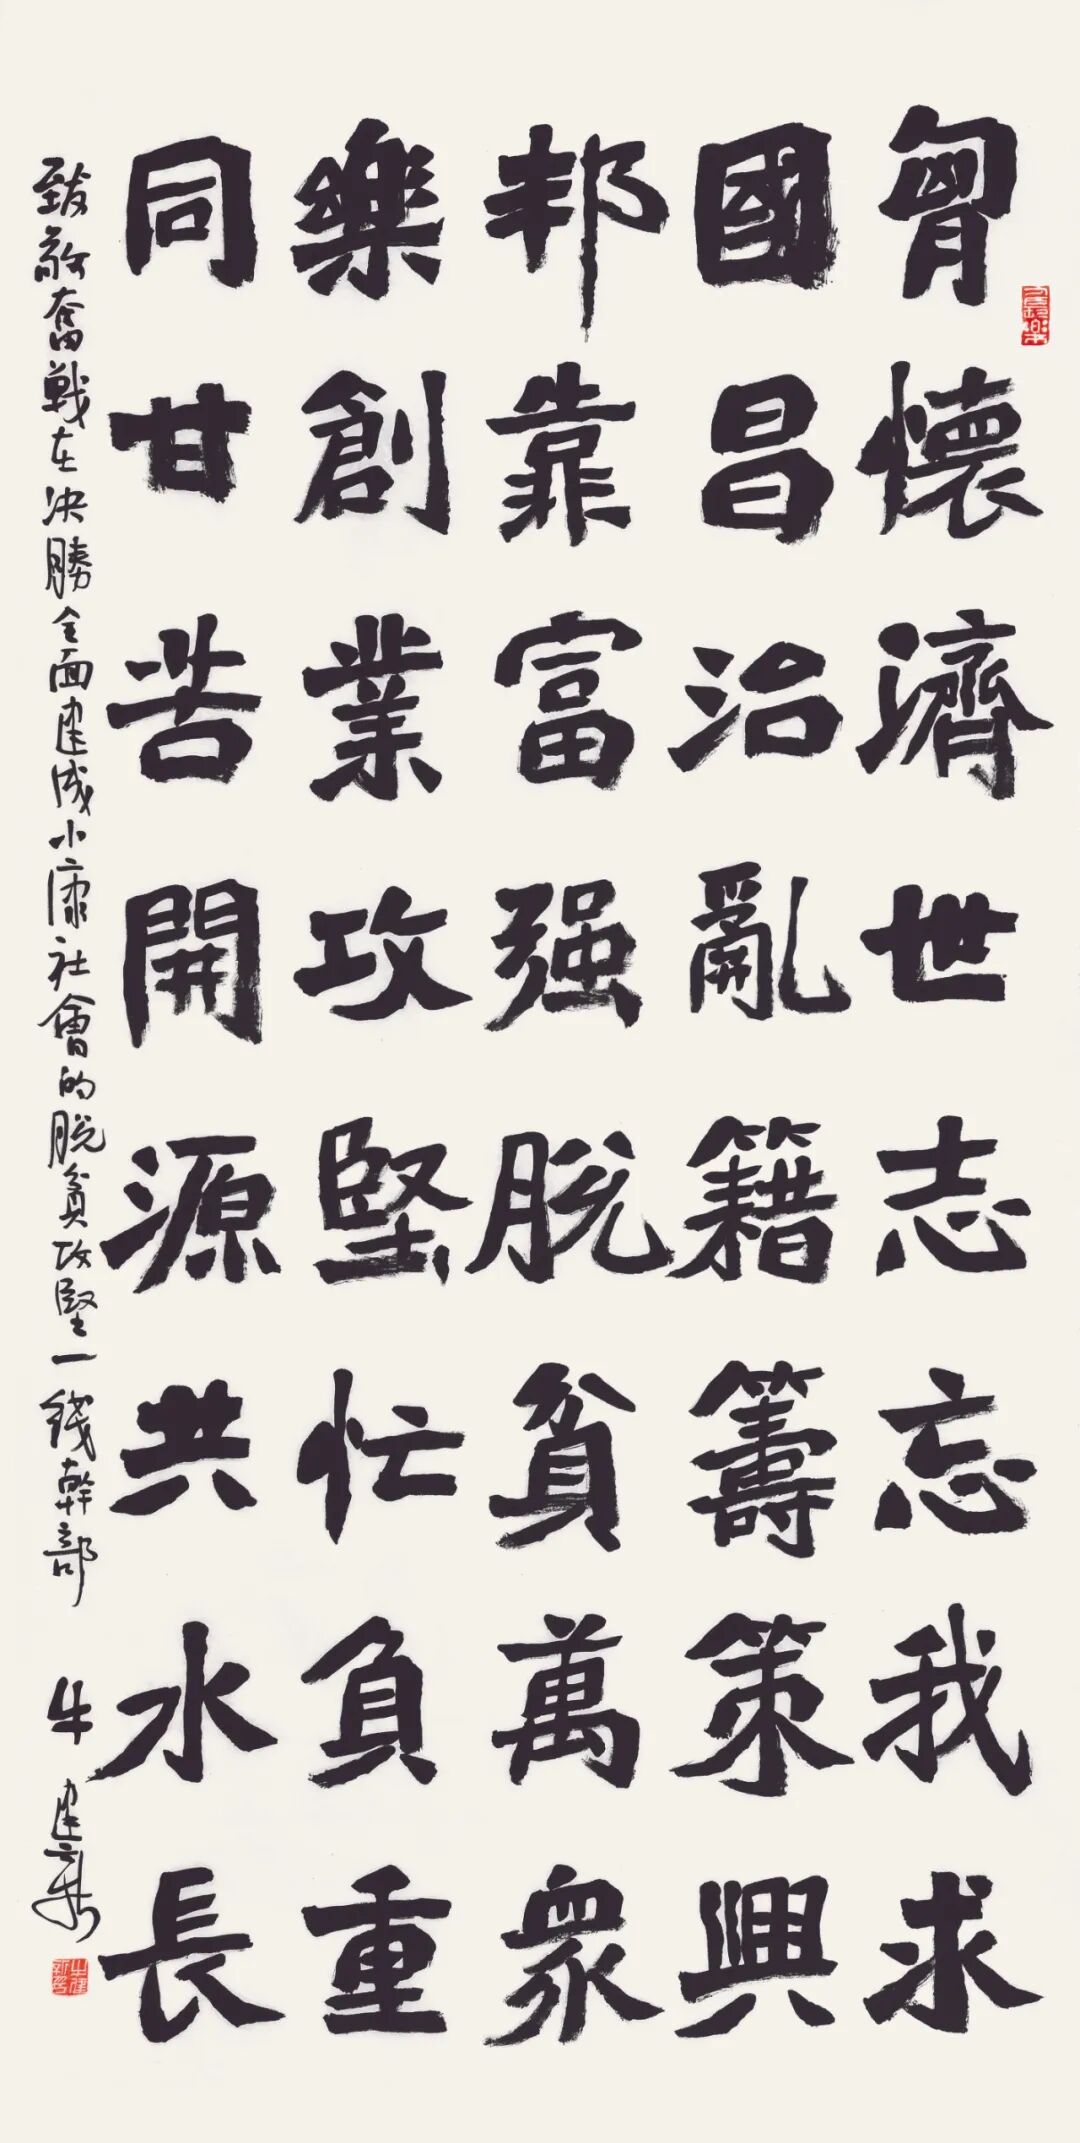 胷懷濟世志忘我求
國昌治亂籍籌策興
邦靠富强脱貧萬衆
樂創業攻堅忙負重
同甘苦開源共水長
致敬奮戰在决勝全面建成小康社會的脱貧攻堅一綫幹部 牛建新